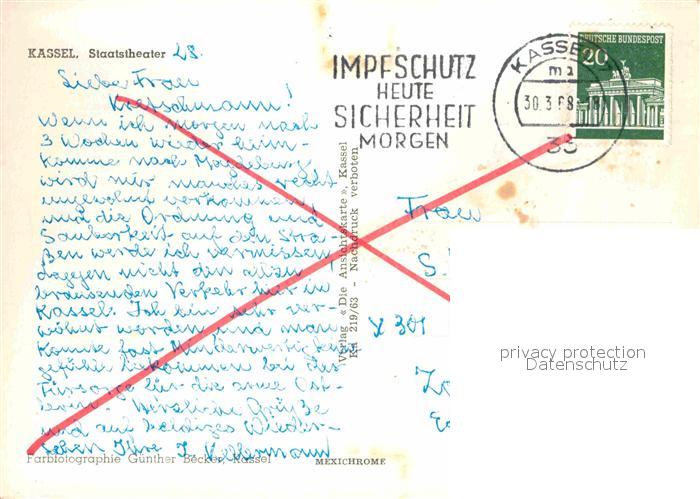 KASSEL, Staatstheater 28.
Liebe Frau
Kretschmann!
Wenn ich morgen nach
3 Wochen wieder heim-
komme nach Magdeburg
wird mir manches recht
ungewohnt vorkommen
und die Ordnung und
Sauberkeit auf den Stra-
ßen werde ich vermissen
dagegen nicht den allzu
brausenden Verkehr hier in
Kassel. Ich bin sehr ver-
wöhnt worden und man
könnte fast Minderwertigkeits
gefühle bekommen bei der
Fürsorge für die arme Ost-
Herzliche Grüße
und auf baldiges Wieder-
sehen Ihre I. Kellermann
Farbfotographie Günther Becker, Kassel
MEXICHROME
Verlag «Die Ansichtskarte», Kassel
Ka 219/63 - Nachdruck verboten
IMPFSCHUTZ
HEUTE
SICHERHEIT
MORGEN
KASSEL
ma
30.3.68
35
DEUTSCHE BUNDESPOST
20
Frau
S.
X 301
privacy protection
Datenschutz